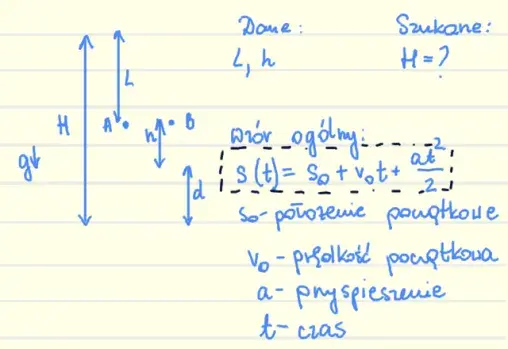 Dane:
Szukane:
L, h
H = ?
L
H
A
h
B
g
d
Wzór ogólny:
s(t) = s₀ + v₀t + at²/2
s₀ - położenie początkowe
v₀ - prędkość początkowa
a - przyspieszenie
t - czas